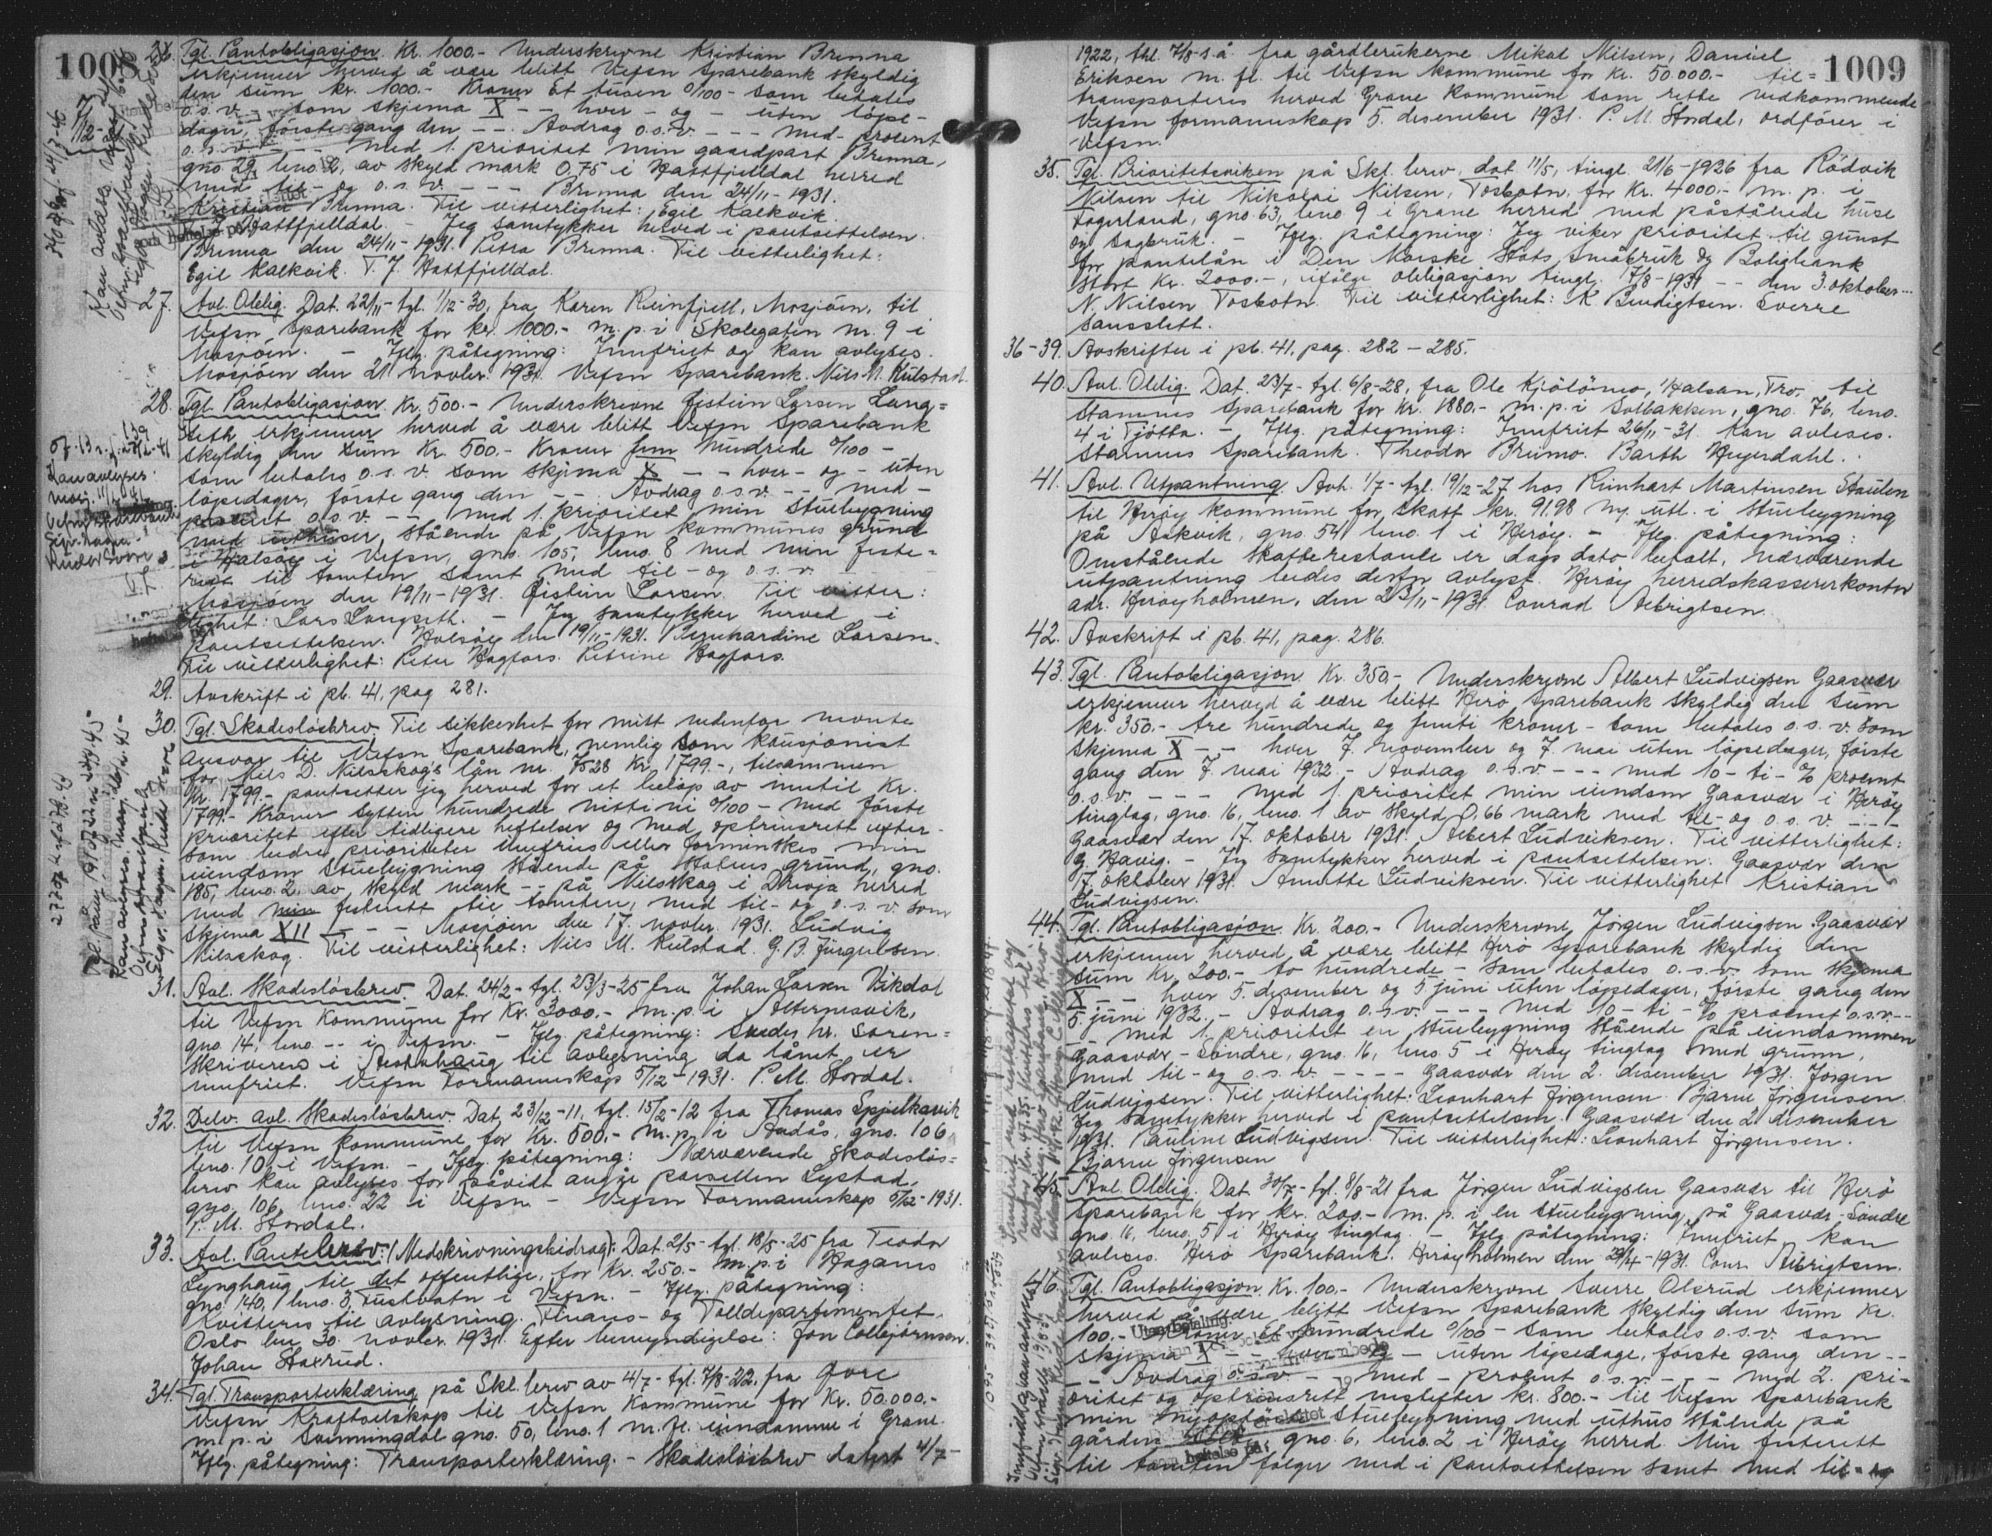 1008
26. Tgl. Pantobligasjon Kr. 1000.- Underskrevne Kristian Brenna
erkjenner herved å være blitt Vefsn Sparebank skyldig
den sum kr. 1000.- Kroner Et tusen 0/100 - som betales
o.s.v. - som skjema X - - hver - og - uten løpe-
dager, første gang den - - . Avdrag o.s.v. - - - med - prosent
o.s.v. - - - med 1. prioritet min gaardpart Brenna,
gno. 29, bno. 2, av skyld mark 0,75 i Hattfjelldal herred
med til - og o. s. v. - - - Brenna den 24/11 - 1931.
Kristian Brenna. Til vitterlighet: Egil Kalkvik.
Hattfjelldal. - Jeg samtykker herved i pantsettelsen.
Brenna den 24/11 - 1931. Petra Brenna. Til vitterlighet:
Egil Kalkvik. T. J. Hattfjelldal.
27. Avl. Oblig. Dat. 22/11 - tgl. 1/12 - 30, fra Karen Reinfjell, Mosjøen, til
Vefsn Sparebank for kr. 1000.- m. p. i Skolegaten nr. 9 i
Mosjøen. - Iflg. påtegning: Innfriet og kan avlyses.
Mosjøen den 21 novbr. 1931. Vefsn Sparebank. Nils M. Kulstad.
28. Tgl. Pantobligasjon. Kr. 500.- Underskrevne Øistein Larsen Lang=
seth erkjenner herved å være blitt Vefsn Sparebank
skyldig den sum kr. 500.- Kroner fem hundrede 0/100 -
som betales o.s.v. som skjema X - - hver - og - uten
løpedager, første gang den - - . Avdrag o.s.v. - - - med -
prosent o.s.v. - - med 1. prioritet min stuebygning
med uthuser, stående på Vefsn kommunes grund
i Halsøy i Vefsn, gno. 105, bno. 8 med min feste=
rett til tomten samt med til - og o. s. v.
Mosjøen den 19/11 - 1931. Øistein Larsen. Til vitter:
lighet: Lars Langseth. - Jeg samtykker herved i
pantsettelsen. Halsøy den 19/11 - 1931. Bernhardine Larsen.
Til vitterlighet: Peter Hagfors. Petrine Hagfors.
29. Avskrift i pb. 41, pag 281.
30. Tgl. Skadesløsbrev. Til sikkerhet for mitt nedenfor nevnte
ansvar til Vefsn Sparebank, nemlig som kausjonist
for Nils D. Nilsskog's lån nr. 7528 Kr. 1799.-, tilsammen
Kr. 1799.- pantsetter jeg herved for et beløp av inntil Kr.
1799.- Kroner sytten hundrede nitti ni 0/100 - med første
prioritet efter tidligere heftelser og med optrinsrett efter-
som bedre prioriteter innfries eller forminskes min
eiendom Stuebygning stående på Statens grund, gno.
185, bno. 2 av skyld mark - - på Nilsskog i Drevja herred
med min festerett til tomten, med til - og o. s. v. som
skjema XII - - - Mosjøen den 17. novbr. 1931. Ludvig
Nilsskog. Til vitterlighet: Nils M. Kulstad. G. B. Jürgensen.
31. Avl. Skadesløsbrev. Dat. 24/2 - tgl. 23/3 - 25 fra Johan Larsen Vikdal
til Vefsn Kommune for Kr. 3000.- m. p. i Alternesvik,
gno. 14, bno. - - i Vefsn. - Iflg. påtegning: Sendes hr. Soren=
skriveren i Alstahaug til avlysning da lånet er
innfriet. Vefsn Formannskap 5/12 - 1931. P. M. Stordal.
32. Delv. avl. Skadesløsbrev. Dat. 23/12 - 11, tgl. 15/2 - 12 fra Thomas Spjelkavik
til Vefsn kommune for Kr. 500.- m. p. i Andås, gno. 106,
bno. 10 i Vefsn. - Iflg. påtegning: Nærværende skadesløs=
brev kan avlyses for såvidt angår parsellen Lystad,
gno. 106, bno. 22 i Vefsn. - Vefsn Formannskap 5/12 - 1931.
P. M. Stordal.
33. Avl. Pantebrev: (Nedskrivningsbidrag): Dat. 2/5 - tgl. 18/5 - 25 fra Teodor
Lynghaug til det offentlige, for Kr. 250.- m. p. i Haganes
gno. 140, bno. 3, Fustvatn i Vefsn. - Iflg. påtegning:
Kvitteres til avlysning. Finans- og Tolldepartementet.
Oslo den 30. novbr. 1931. Efter bemyndigelse: Jon Collejørnsen.
Johan Staxrud.
34. Tgl. Transporterklæring på Skl. brev av 4/7 - tgl. 7/8 - 22, fra Øvre
Vefsn Kraftselskap til Vefsn Kommune for Kr. 50.000.-
m. p. i Svenningdal gno. 50, bno. 1 m. fl. eiendomme i Grane.
Iflg. påtegning: Transporterklæring. - Skadesløsbrev datert 4/7 -
1009
1922, thl. 7/8 - s. å. fra gårdbrukerne Mikal Nilsen, Daniel
Eriksen m. fl. til Vefsn kommune for Kr. 50.000.- til=
transporteres herved Grane kommune som rette vedkommende
Vefsn formannskap 5. desember 1931. P. M. Stordal, ordfører i
Vefsn.
35. Tgl. Prioritetsviken på Skl. brev, dat. 11/5, tingl. 21/6 - 1926 fra Rødvik
Nilsen til Nikolai Nilsen, Tosbotn, for Kr. 4000.- m. p. i
Fagerland, gno. 63, bno. 9 i Grane herred med påstående huse
og sagbruk. - Iflg. påtegning: Jeg viker prioritet til gunst
for pantelån i Den Norske Stats Småbruk og Boligbank
stort kr. 2000.-, ifølge obligasjon tingl. 17/8 - 1931 - - den 3. oktober ..
N. Nilsen Tosbotn. Til vitterlighet: K. Bendigtsen. Sverre
Sausslett.
36-39. Avskrifter i pb. 41, pag. 282 - 285.
40. Avl. Oblig. Dat. 23/7 - tgl. 6/8 - 28, fra Ole Kjølømo, Halsan, Tro, til
Stamnes Sparebank for Kr. 1880.- m. p. i Solbakken, gno. 76, bno.
4 i Tjøtta. - Iflg. påtegning: Innfriet 26/11 - 31. Kan avleses.
Stamnes Sparebank. Theodor Breimo. Barth Heyerdahl.
41. Avl. Utpantning. Avh. 1/7 - tgl. 19/12 - 27 hos Reinhart Martinsen Staulen
til Herøy kommune for skatt kr. 91.98 m. utl. i stuebygning
på Askvik, gno. 54 bno. 1 i Herøy. - Iflg. påtegning:
Omstående skatterestanse er dags dato betalt, nærværende
utpantning bedes derfor avlyst. Herøy herredskassererkontor
adr. Herøyholmen, den 23/11 - 1931. Conrad Albrigtsen.
42. Avskrift i pb. 41, pag. 286.
43. Tgl. Pantobligasjon. Kr. 350.- Underskrevne Albert Ludvigsen Gaasvær
erkjenner herved å være blitt Herø Sparebank skyldig den sum
kr. 350.- tre hundrede og femti kroner - som betales o. s. v. som
skjema X - - hver 7. november og 7. mai uten løpedager, første
gang den 7 mai 1932 - Avdrag o.s.v. - - - med 10 - ti - % prosent
o.s.v. - - - med 1. prioritet min eiendom Gaasvær i Herøy
tinglag, gno. 16, bno. 1 av skyld 0,66 mark med til - og o. s. v. - - -
Gaasvær den 17. oktober 1931. Albert Ludviksen. Til vitterlighet:
G. Havig. - Jeg samtykker herved i pantsettelsen. Gaasvær den
17. oktober 1931. Annette Ludviksen. Til vitterlighet Kristian
Ludvigsen.
44. Tgl. Pantobligasjon. Kr. 200.- Underskrevne Jørgen Ludvigsen Gaasvær
erkjenner herved å være blitt Herø Sparebank skyldig den
sum Kr. 200.- to hundrede - som betales o. s. v. som skjema
X - - hver 5. desember og 5 juni uten løpedager, første gang den
5. juni 1932. - Avdrag o.s.v. - - - med 10 - ti - % prosent o.s.v. - -
- med 1. prioritet en stuebygning stående på eiendommen
Gaasvær - Søndre, gno. 16, bno. 5 i Herøy tinglag med grunn,
med til - og o. s. v. - - - - Gaasvær den 2. desember 1931. Jørgen
Ludvigsen. Til vitterlighet: Leonhart Jørgensen. Bjarne Jørgensen.
Jeg samtykker herved i pantsettelsen. Gaasvær den 2. desember
1931. Pauline Ludvigsen. Til vitterlighet: Leonhart Jørgensen.
Bjarne Jørgensen
45. Avl. Oblig. Dat. 30/7 - tgl. 8/8 - 21 fra Jørgen Ludvigsen Gaasvær til Herø
Sparebank for kr. 200.- m. p. i en stuebygning på Gaasvær - Søndre
gno. 16, bno. 5 i Herøy tinglag. - Iflg. påtegning: Innfriet, kan
avleses. Herø Sparebank. Herøyholmen den 29/4 - 1931. Conr. Albrigtsen.
46. Tgl. Pantobligasjon Kr. 100.- Underskrevne Sverre Olsrud erkjenner
herved å være blitt Vefsn Sparebank skyldig den sum kr.
100.- Kroner Et hundrede 0/100 - som betales o. s. v. som
skjema X - - hver - og - uten løpedage, første gang den - -
- - Avdrag o.s.v. - - med - prosent o.s.v. - - - med 2. pri-
oritet og optrinsrett nestefter kr. 800.- til Vefsn Sparebank
min stuebygning med uthus stående på
gården gno. 6, bno. 2 i Herøy herred. Min festerett
til tomten følger med i pantsettelsen samt med til - og